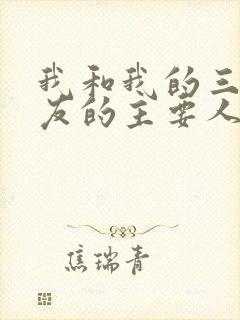 我和我的三
友的主要人
焦瑞青